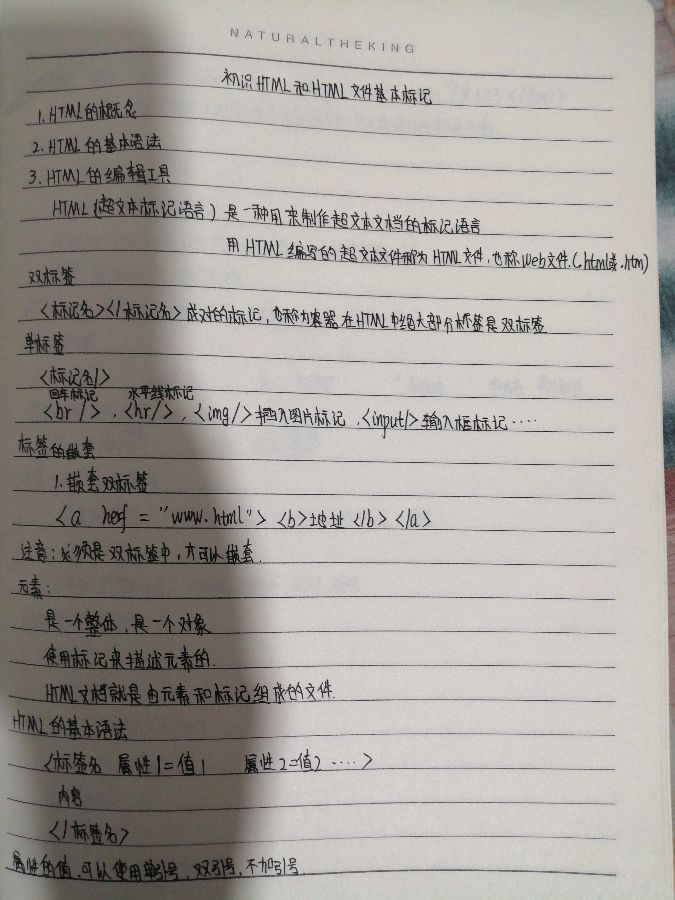 NATURALTHEKING
初识HTML和HTML文件基本标记
1. HTML的概念
2. HTML的基本语法
3. HTML的编辑工具
HTML(超文本标记语言)是一种用来制作超文本文档的标记语言
用HTML编写的超文本文件称为HTML文件,也称web文件.(.html或.htm)
双标签
<标记名></标记名>成对的标记,也称为容器 在HTML中绝大部分标签是双标签
单标签
<标记名/>
回车标记 水平线标记
<br/>,<hr/>,<img/>插入图片标记,<input/>输入框标记····
标签的嵌套
1. 嵌套双标签
<a herf = "www.html"> <b>地址</b> </a>
注意:必须是双标签中,才可以嵌套.
元素:
是一个整体,是一个对象
使用标记来描述元素的.
HTML文档就是由元素和标记组成的文件.
HTML的基本语法
<标签名 属性1=值1 属性2=值2 ····>
内容
</标签名>
属性的值,可以使用单引号,双引号,不加引号.